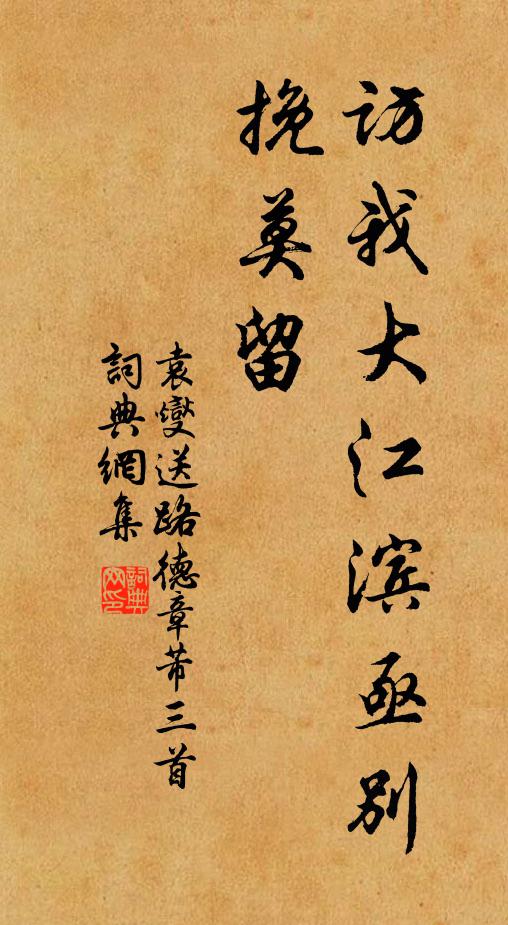 访我大江滨亟别
挽莫留
袁燮送路德章芾三首
詞典網集
詞典網印